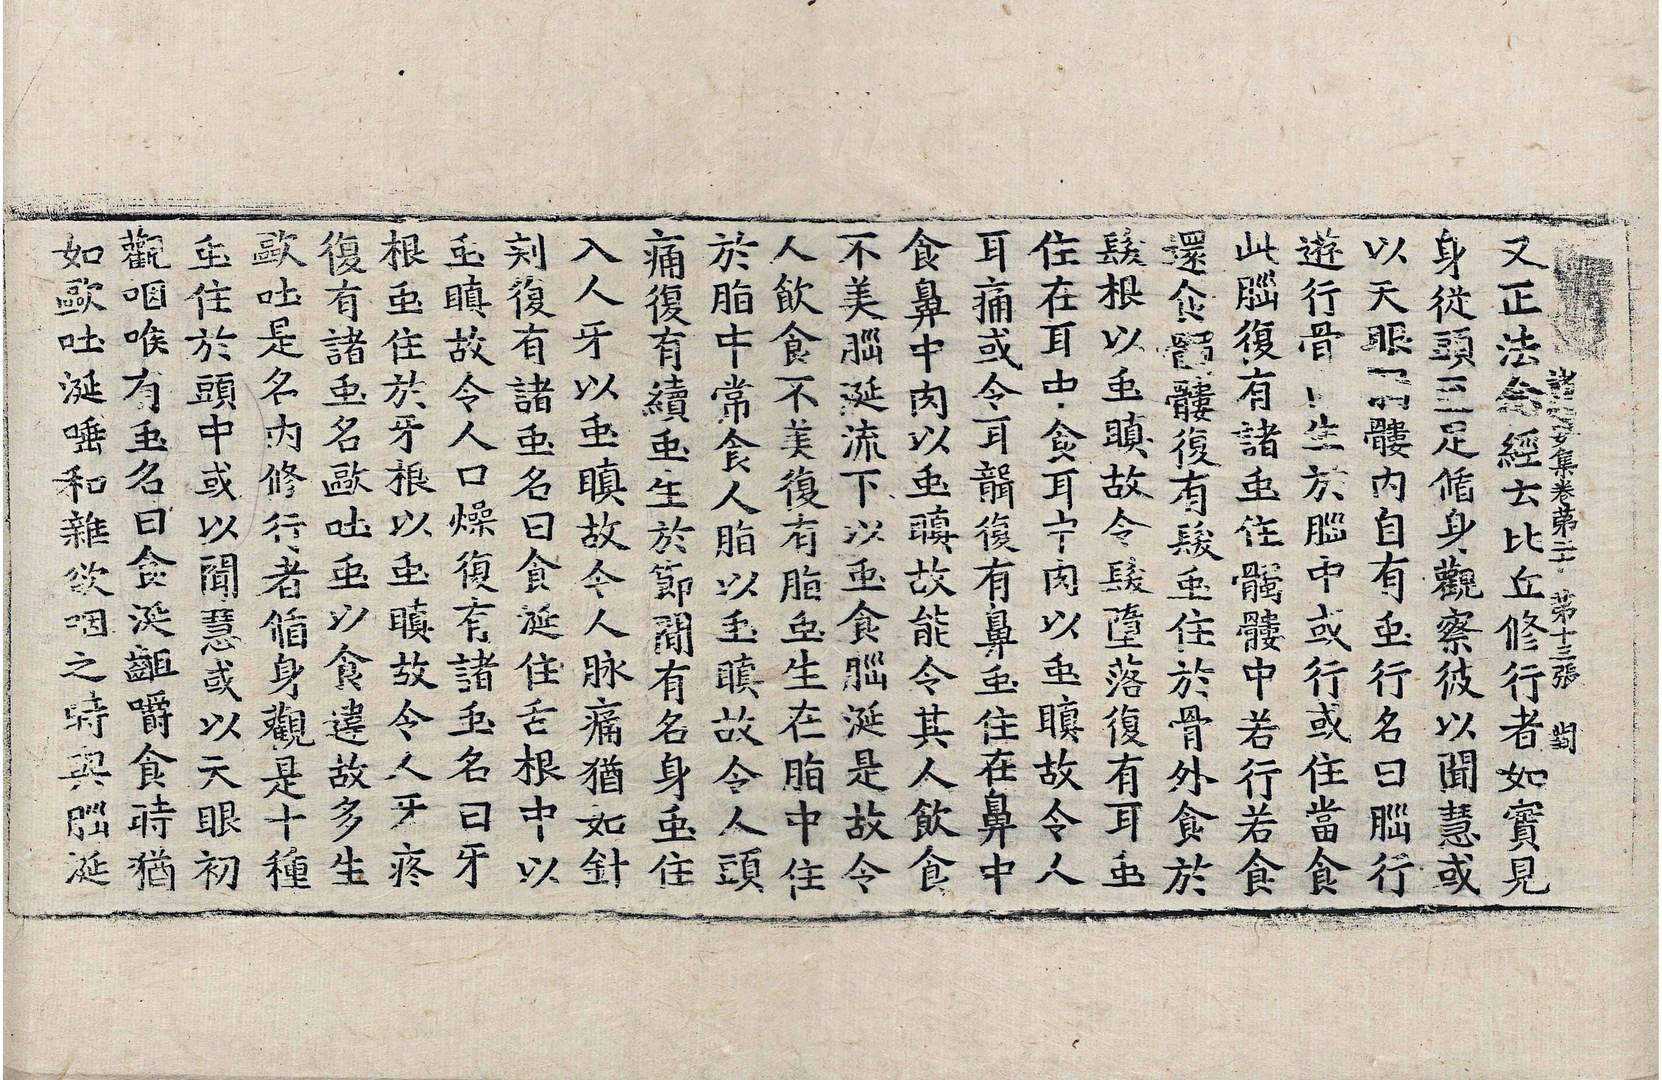 諸經要集卷第二十 第十三張 翦
又正法念經去比丘修行者如實見
身從頭至足循身觀察彼以聞慧或
以天眼髑髏内自有䖝行名曰腦行
遊行骨内生於腦中或行或住當食
此腦復有諸䖝住髑髏中若行若食
還食髑髏復有髮䖝住於骨外食於
髮根以䖝瞋故令髮墮落復有耳䖝
住在耳中食耳中肉以䖝瞋故令人
耳痛或令耳聾復有鼻䖝住在鼻中
食鼻中肉以䖝瞋故能令其人飲食
不美腦涎流下以䖝食腦涎是故令
人飲食不美復有脂䖝生在脂中住
於脂中常食人脂以䖝瞋故令人頭
痛復有續䖝生於節間有名身䖝住
入人牙以䖝瞋故令人脉痛猶如針
刾復有諸䖝名曰食涎住舌根中以
䖝瞋故令人口燥復有諸䖝名曰牙
根䖝住於牙根以䖝瞋故令人牙疼
復有諸䖝名歐吐䖝以食違故多生
歐吐是名内修行者循身觀是十種
䖝住於頭中或以聞慧或以天眼初
觀咽喉有䖝名曰食涎齟嚼食時猶
如歐吐涎唾和雜欲咽之時與腦涎